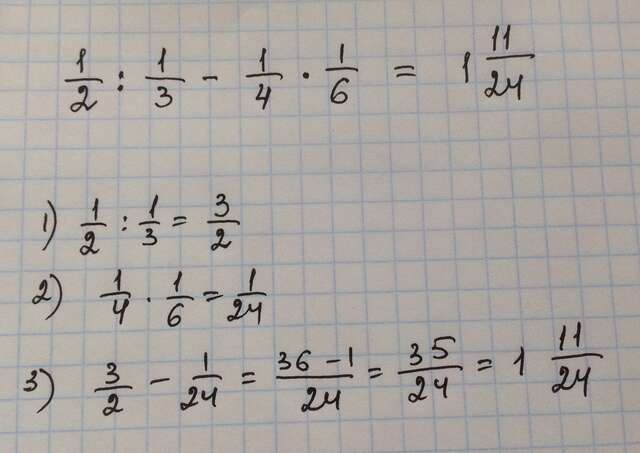 1/2 : 1/3 - 1/4 · 1/6 = 1 11/24
1) 1/2 : 1/3 = 3/2
2) 1/4 · 1/6 = 1/24
3) 3/2 - 1/24 = 36-1/24 = 35/24 = 1 11/24